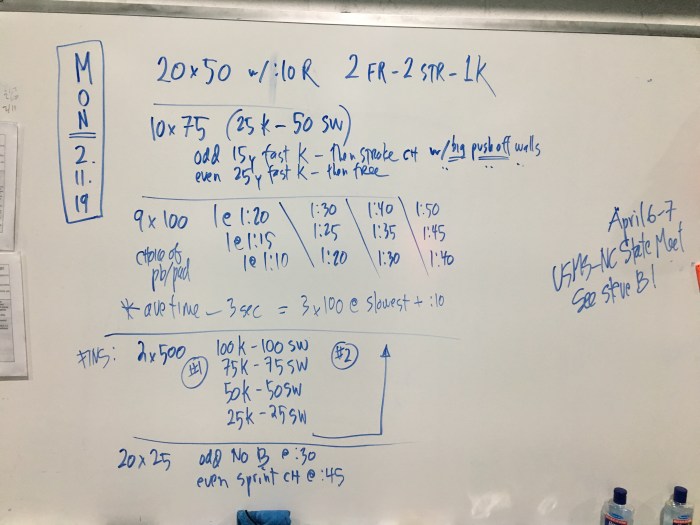 MON
2.
11.
19
20x50 w/:10 R 2 FR - 2 STR - 1K
10x75 (25K - 50 SW)
odd 15y fast K - then stroke CH w/ big push off walls
even 25y fast K - then free
9x100 1@ 1:20 \ 1:30 \ 1:40 \ 1:50
1@ 1:15 1:25 1:35 1:45
choice of pb/pad 1@ 1:10 1:20 1:30 1:40
* ave time - 3 sec = 3x100 @ slowest + :10
FINS: 2x500 #1 100K - 100 SW #2
75K - 75 SW
50K - 50 SW
25K - 25 SW
20x25 odd No B @ :30
even sprint CH @ :45
April 6-7
USMS-NC State Meet
See Steve B!